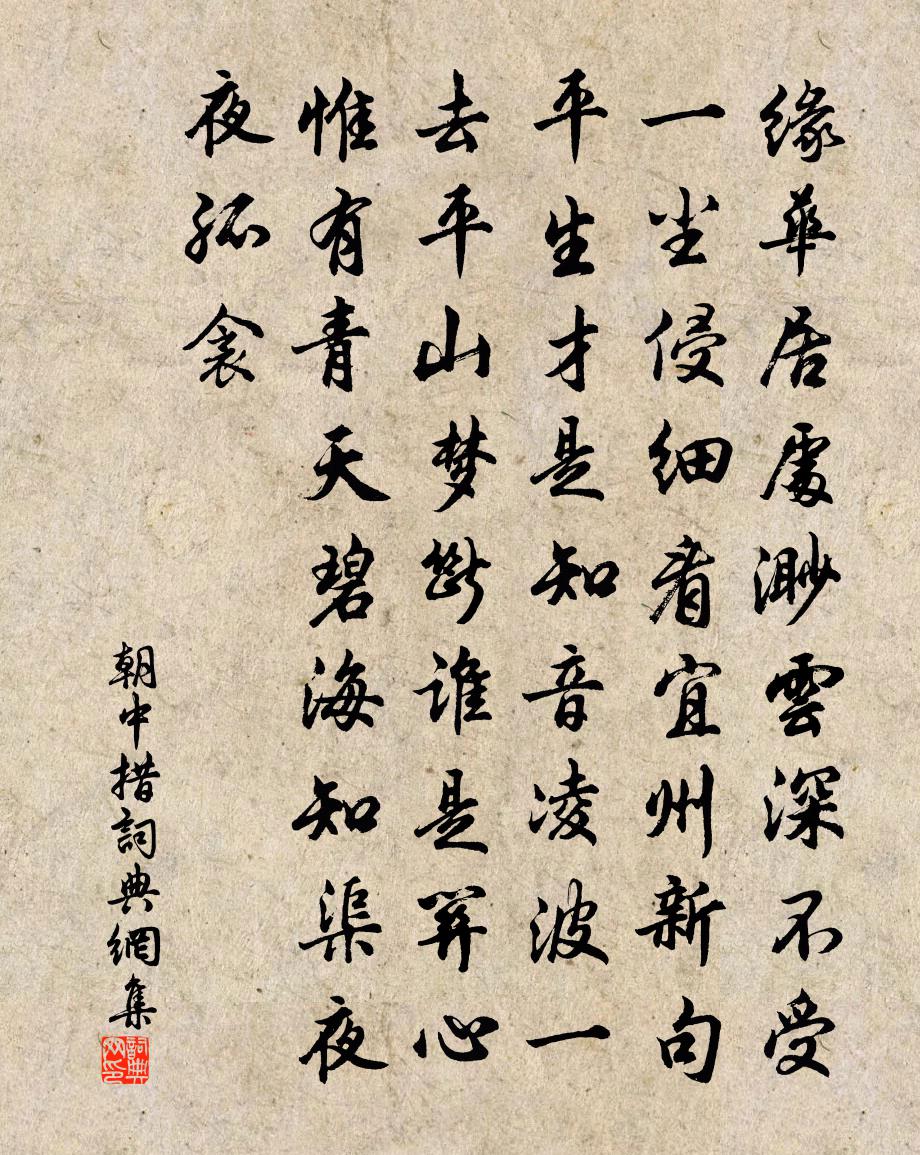 缘華居處渺雲深不受
一尘侵細看宜州新句
平生才是知音凌波一
去平山梦斷谁是関心
惟有青天碧海知渠夜
夜孤衾
朝中措詞典網集
詞典网印